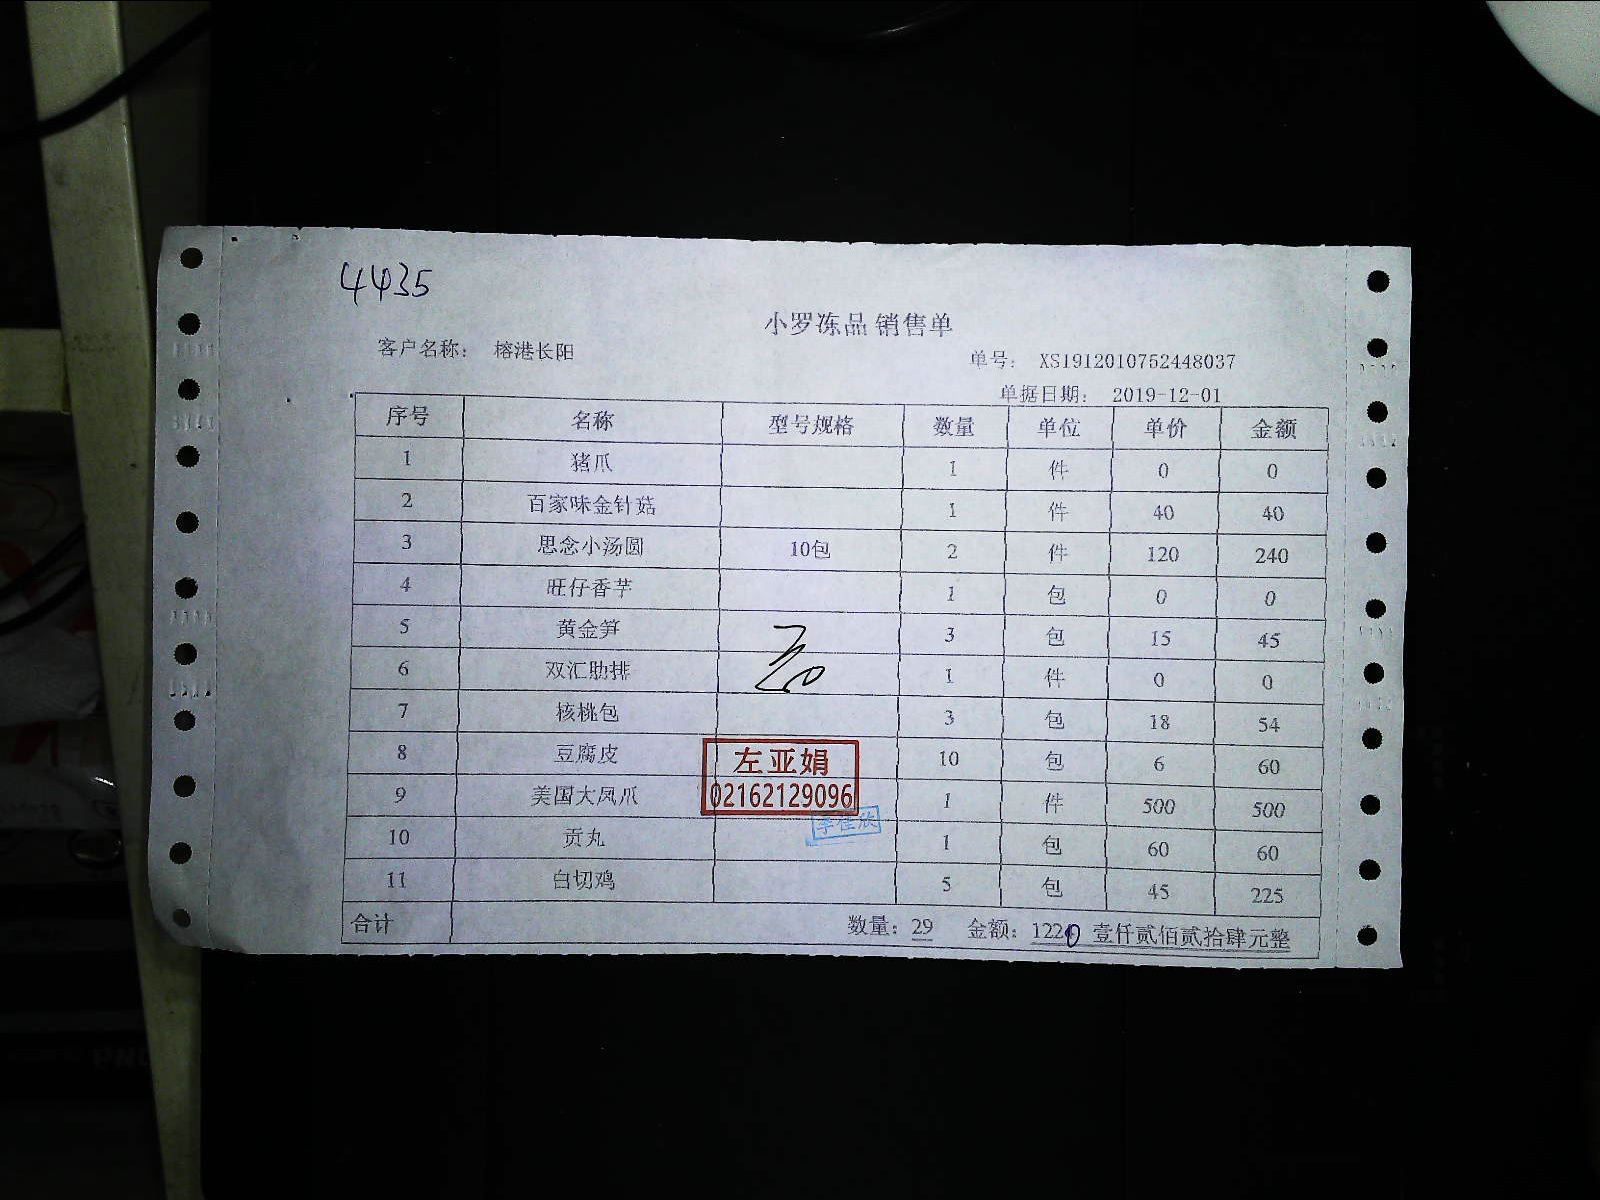 4435
小罗冻品 销售单
客户名称： 榕港长阳
单号： XS1912010752448037
单据日期： 2019-12-01
序号 名称 型号规格 数量 单位 单价 金额
1 猪爪 1 件 0 0
2 百家味金针菇 1 件 40 40
3 思念小汤圆 10包 2 件 120 240
4 旺仔香芋 1 包 0 0
5 黄金笋 3 包 15 45
6 双汇肋排 1 件 0 0
7 核桃包 3 包 18 54
8 豆腐皮 10 包 6 60
9 美国大凤爪 1 件 500 500
10 贡丸 1 包 60 60
11 白切鸡 5 包 45 225
左亚娟
02162129096
李佳欣
合计 数量：29 金额：1220 壹仟贰佰贰拾肆元整